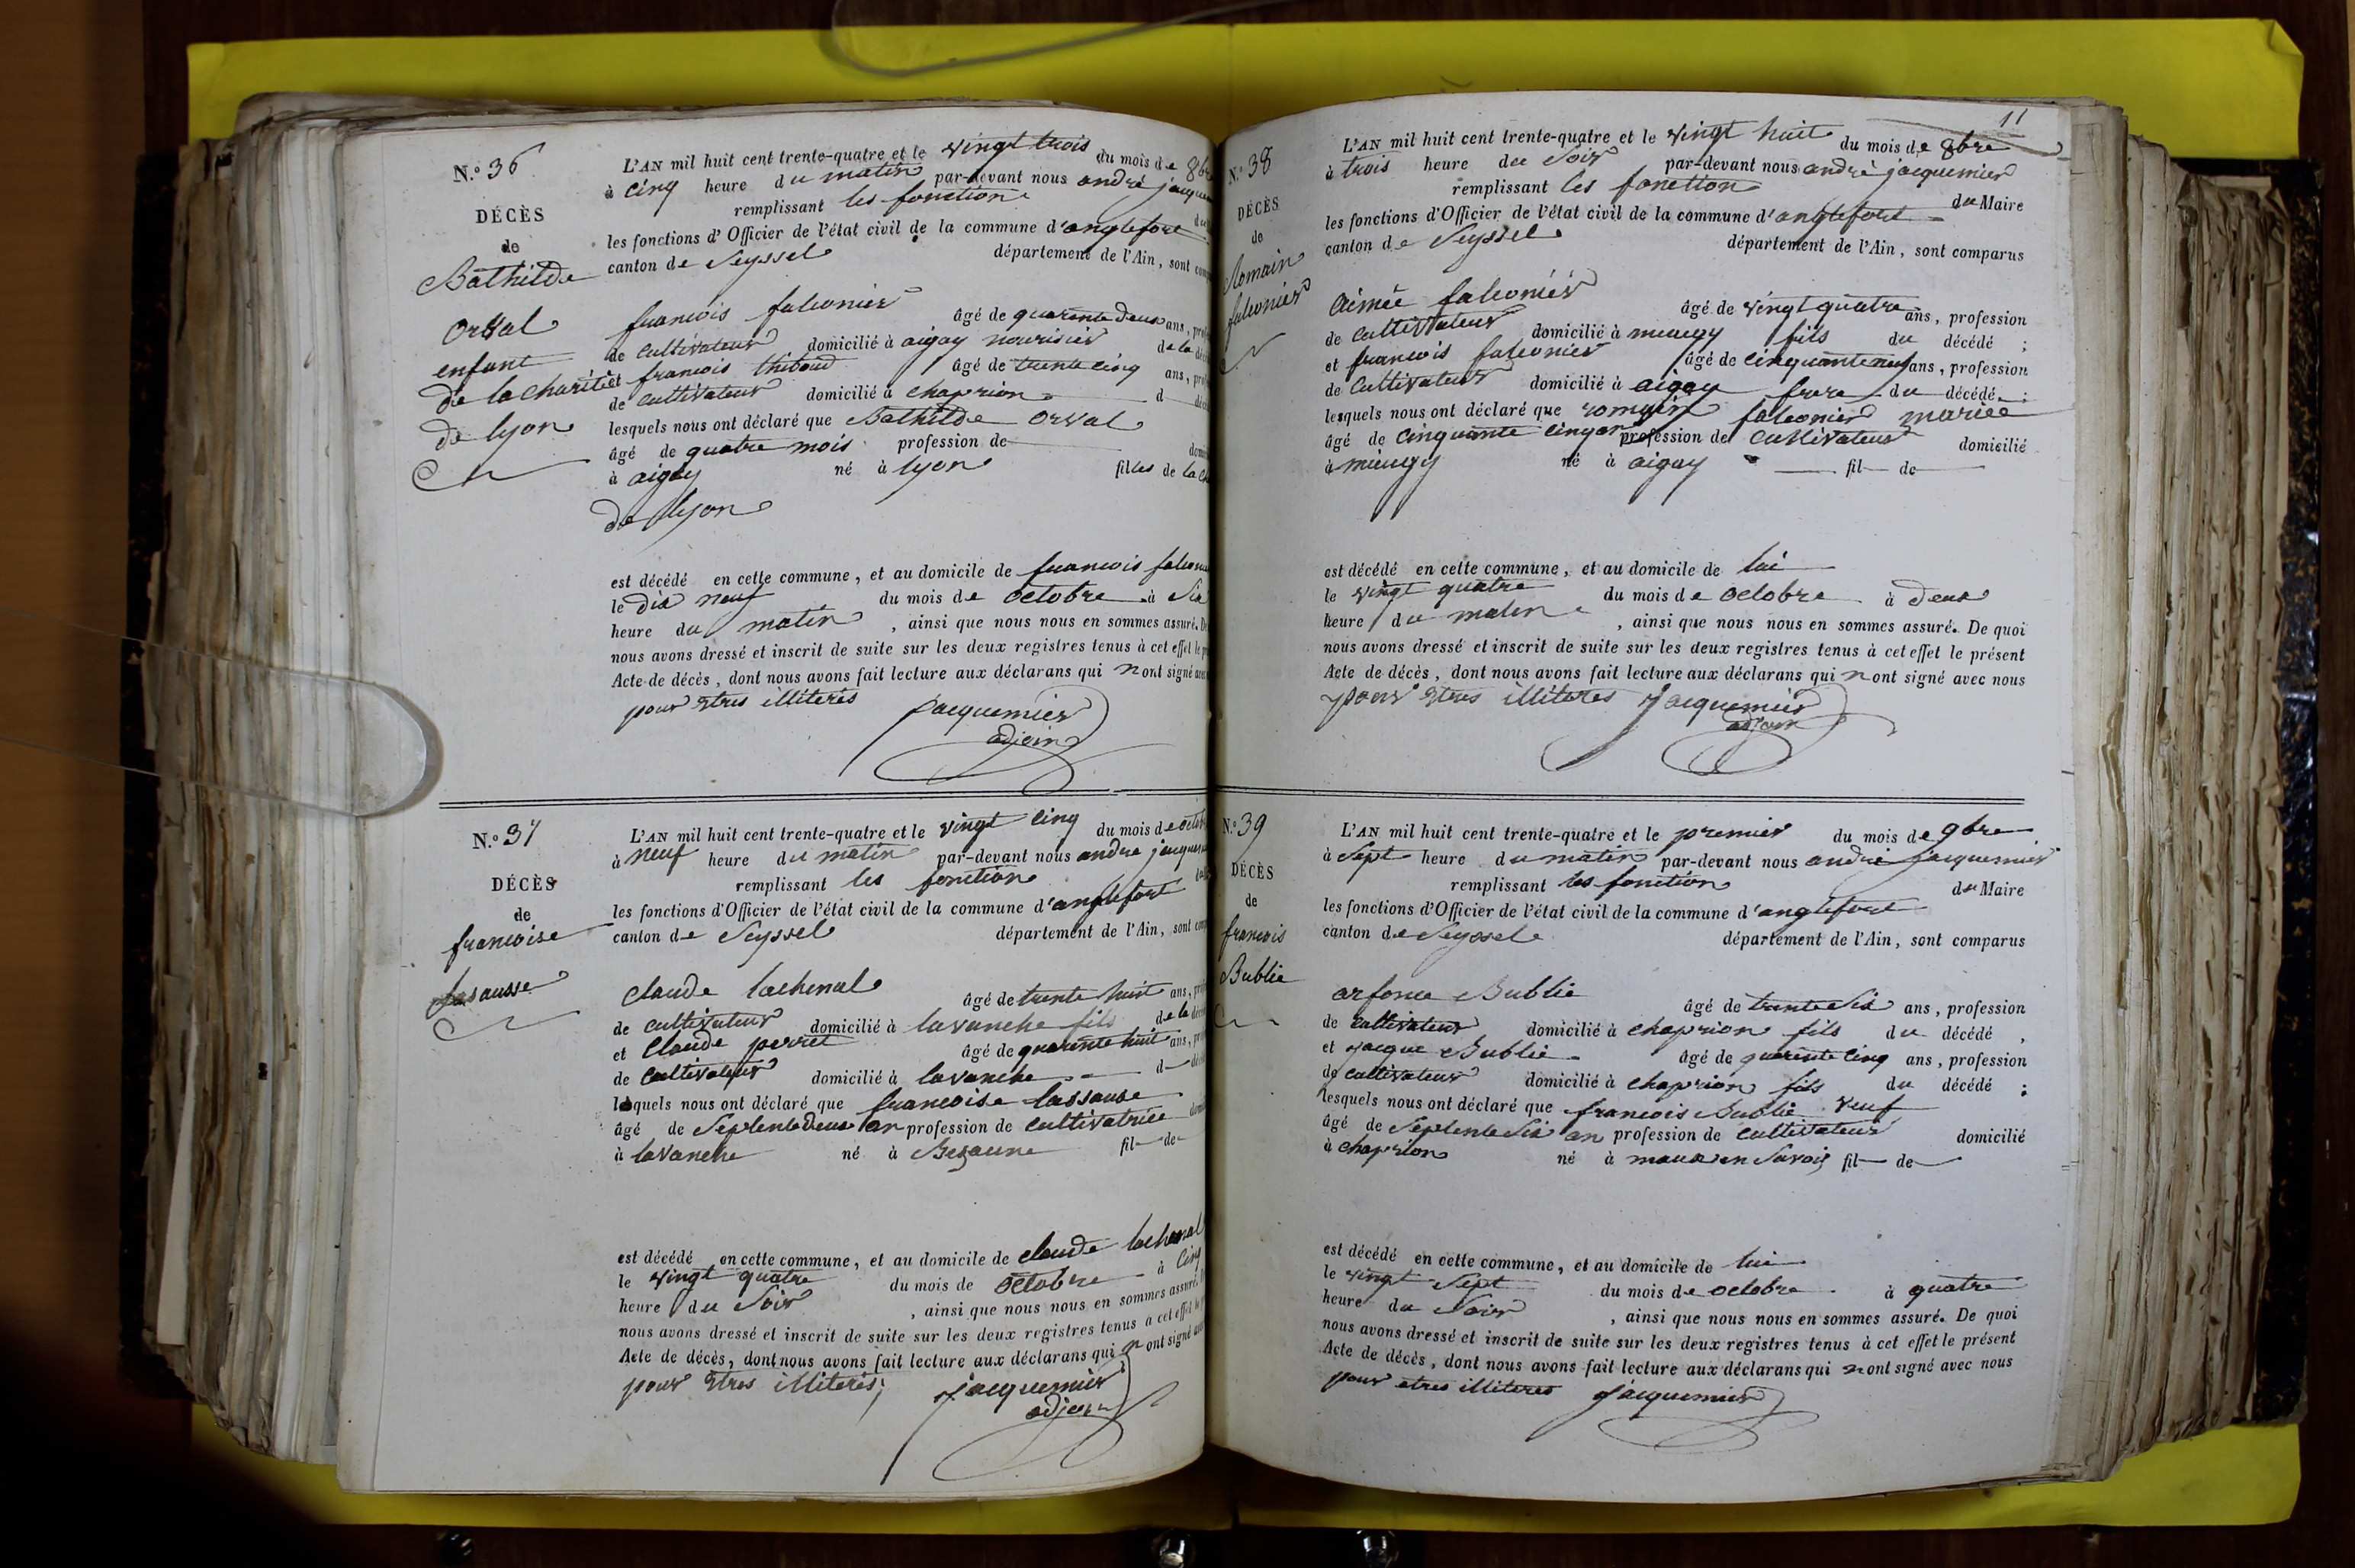 N.° 36
DÉCÈS
de
Bathilde
orval
enfant
de la charité
de lyon
L'AN mil huit cent trente-quatre et le vingt trois du mois de 8bre
à cinq heure du matin par-devant nous andré jacquemier
remplissant les fonction du
les fonctions d'Officier de l'état civil de la commune d'anglefort
canton de Seyssel département de l'Ain, sont comp
francois falconier âgé de quarente deux ans, prof
de cultivateur domicilié à aigay nourisier de la déc
et francois thiboud âgé de trente cinq ans, prof
de cultivateur domicilié à chaprion d déc
lesquels nous ont déclaré que Bathilde orval
âgé de quatre mois profession de domi
à aigay né à lyon filles de la ch
de lyon
est décédé en cette commune, et au domicile de francois falconier
le dix neuf du mois de octobre à Six
heure du matin, ainsi que nous nous en sommes assuré. De
nous avons dressé et inscrit de suite sur les deux registres tenus à cet effet le pr
Acte de décès, dont nous avons fait lecture aux déclarans qui n'ont signé avec
pour etres illiterés jacquemier
adjoin
N.° 37
DÉCÈS
de
francoise
lasausse
L'AN mil huit cent trente-quatre et le vingt cinq du mois de octob
à neuf heure du matin par-devant nous andré jacquem
remplissant les fonction du
les fonctions d'Officier de l'état civil de la commune d'anglefort
canton de Seyssel département de l'Ain, sont comp
claude lachenal âgé de trente huit ans, prof
de cultivateur domicilié à lavanche fils de la déc
et Claude perret âgé de quarente huit ans, prof
de cultivateur domicilié à lavanche d déc
lesquels nous ont déclaré que francoise lassause
âgé de Septente deux an profession de cultivatrice domi
à lavanche né à Bezaune fil de
est décédé en cette commune, et au domicile de claude lachenal
le vingt quatre du mois de octobre à cinq
heure du Soir, ainsi que nous nous en sommes assuré.
nous avons dressé et inscrit de suite sur les deux registres tenus à cet effet le p
Acte de décès, dont nous avons fait lecture aux déclarans qui n ont signé avec
pour etres illiterés jacquemier
adjoin
11
N.° 38
DÉCÈS
de
Romain
falconier
L'AN mil huit cent trente-quatre et le vingt huit du mois de 8bre
à trois heure du Soir par-devant nous andré jacquemier
remplissant les fonction du Maire
les fonctions d'Officier de l'état civil de la commune d'anglefort
canton de Seyssel département de l'Ain, sont comparus
Aimée falconier âgé de vingt quatre ans, profession
de cultivateur domicilié à mieugy fils du décédé ;
et francois falconier âgé de cinquante neuf ans, profession
de cultivateur domicilié à aigay frere du décédé ;
lesquels nous ont déclaré que romain falconier mariée
âgé de cinquante cinq an profession de cultivateur domicilié
à mieugy né à aigay fil de
est décédé en cette commune, et au domicile de lui
le vingt quatre du mois de octobre à deux
heure du maten, ainsi que nous nous en sommes assuré. De quoi
nous avons dressé et inscrit de suite sur les deux registres tenus à cet effet le présent
Acte de décès, dont nous avons fait lecture aux déclarans qui n ont signé avec nous
pour etres illiteres jacquemier
adjoin
N.° 39
DÉCÈS
de
francois
Bublie
L'AN mil huit cent trente-quatre et le premier du mois de 9bre
à Sept heure du matin par-devant nous andré jacquemier
remplissant les fonction du Maire
les fonctions d'Officier de l'état civil de la commune d'anglefort
canton de Seyssel département de l'Ain, sont comparus
arfonce Bublie âgé de trente Six ans, profession
de cultivateur domicilié à chaprion fils du décédé ,
et jacque Bublie âgé de quarente cinq ans, profession
de cultivateur domicilié à chaprion fils du décédé ;
lesquels nous ont déclaré que francois Bublie veuf
âgé de Septente Six an profession de cultivateur domicilié
à chaprion né à en Savois fil de
est décédé en cette commune, et au domicile de lui
le vingt Sept du mois de octobre à quatre
heure du Soir, ainsi que nous nous en sommes assuré. De quoi
nous avons dressé et inscrit de suite sur les deux registres tenus à cet effet le présent
Acte de décès, dont nous avons fait lecture aux déclarans qui n ont signé avec nous
pour etres illiteres jacquemier